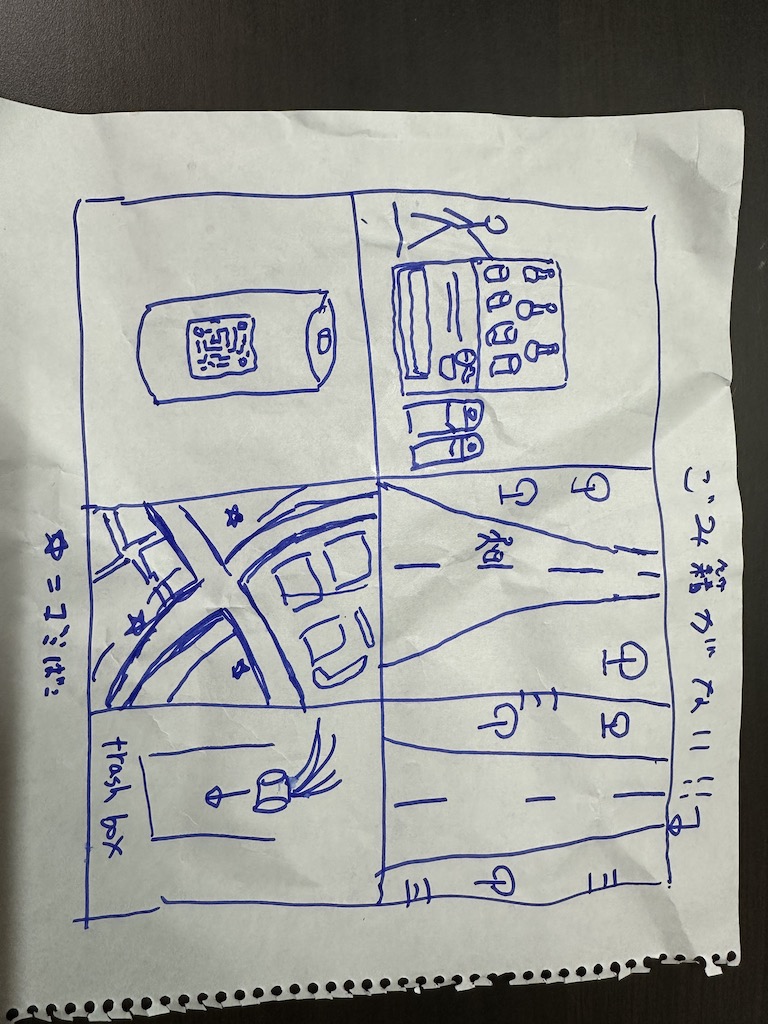 ごみ箱がない!!
☆=ゴミばこ
trash box